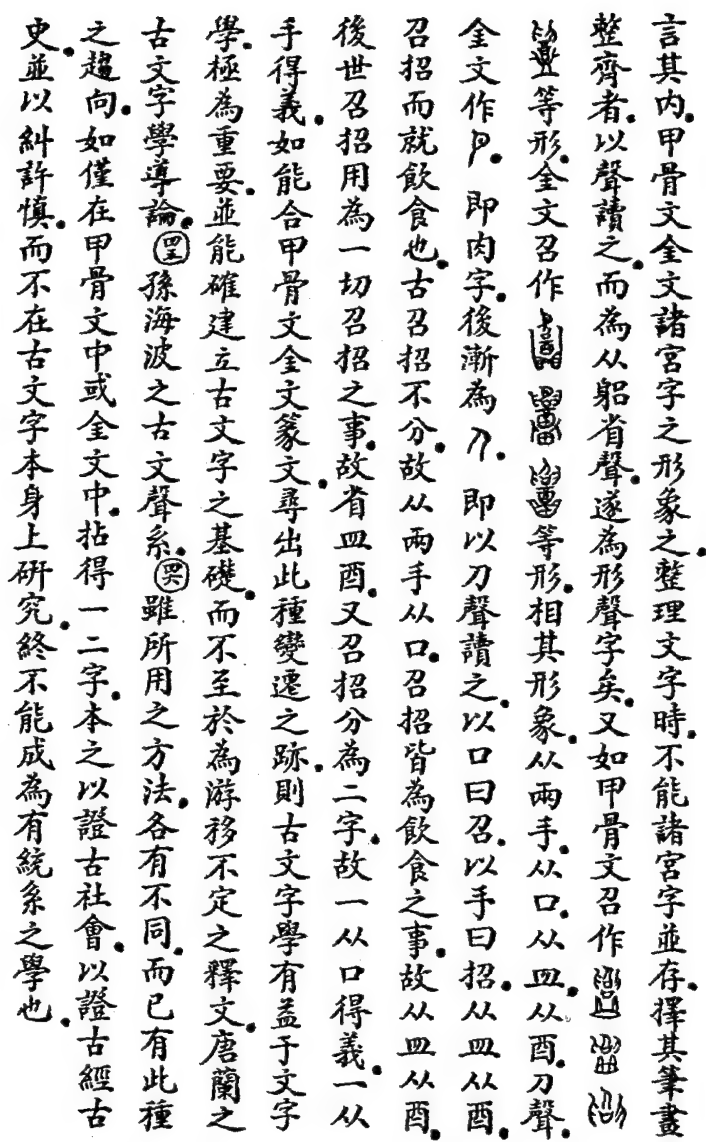 言其内。甲骨文金文諸宮字之形象之。整理文字時。不能諸宮字並存。擇其筆畫
整齊者。以聲讀之。而為从躳省聲。遂為形聲字矣。又如甲骨文召作
等形。金文召作等形。相其形象。从兩手。从口。从皿。从酉。刀聲。
金文作。即肉字。後漸為。即以刀聲讀之。以口曰召。以手曰招。从皿从酉。
召招而就飲食也。古召招不分。故从兩手从口。召招皆為飲食之事。故从皿从酉。
後世召招用為一切召招之事。故省皿酉。又召招分為二字。故一从口得義。一从
手得義。如能合甲骨文金文篆文。尋出此種變遷之跡。則古文字學有益于文字
學。極為重要。並能確建立古文字之基礎。而不至於為游移不定之釋文。唐蘭之
古文字學導論。㊺孫海波之古文聲系。㊻雖所用之方法。各有不同。而已有此種
之趨向。如僅在甲骨文中或金文中。拈得一二字。本之以證古社會。以證古經古
史。並以糾許慎。而不在古文字本身上研究。終不能成為有統系之學也。